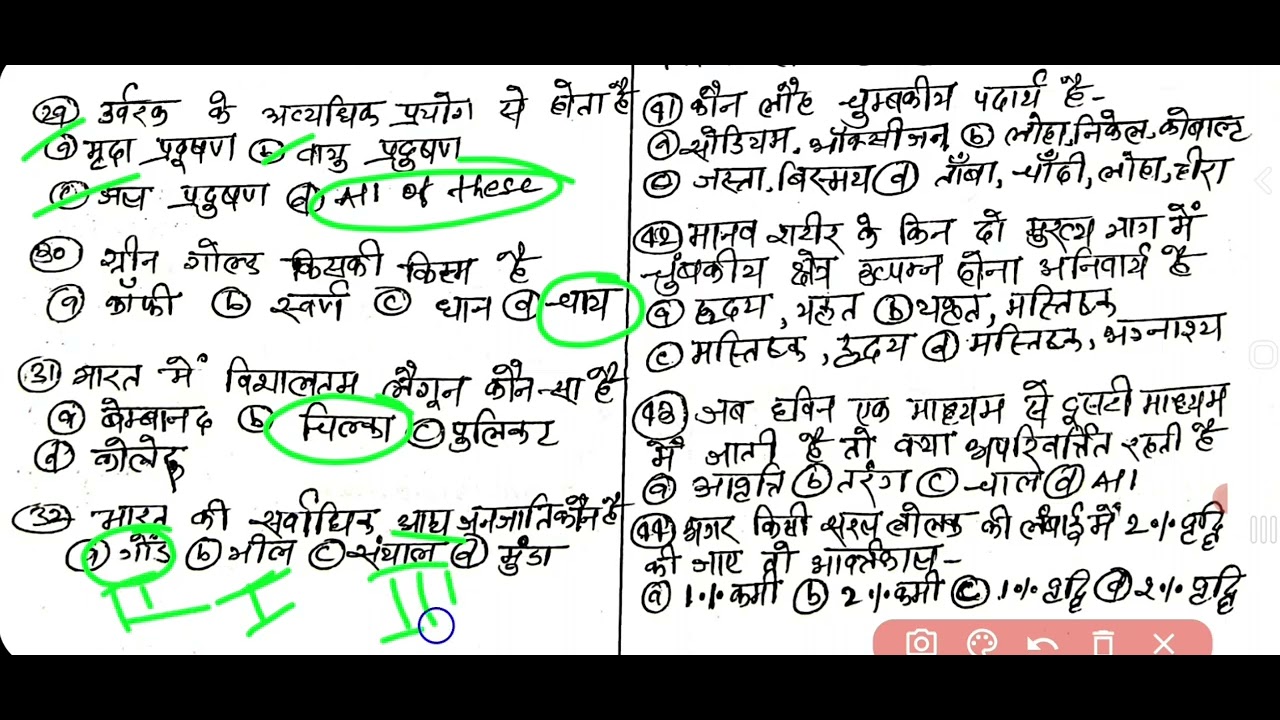 29 उर्वरक के अत्यधिक प्रयोग से होता है
a मृदा प्रदूषण b वायु प्रदुषण
c जल प्रदुषण d All of these
30 ग्रीन गोल्ड किसकी किस्म है
a कॉफी b स्वर्ण c धान d चाय
31 भारत में विशालतम लैगून कौन-सा है
a बेम्बानद b चिल्का c पुलिकट
d कोलेरू
32 भारत की सर्वाधिक आद्य जनजाति कौन है
a गोंड b भील c संथाल d मुंडा
II I III
41 कौन लौह चुम्बकीय पदार्थ है-
a सोडियम, ऑक्सीजन b लोहा, निकेल, कोबाल्ट
c जस्ता, बिस्मथ d ताँबा, चाँदी, लोहा, हीरा
42 मानव शरीर के किन दो मुख्य भाग में
चुंबकीय क्षेत्र उत्पन्न होना अनिवार्य है
a हृदय, यकृत b यकृत, मस्तिष्क
c मस्तिष्क, हृदय d मस्तिष्क, अग्नाश्य
43 जब ध्वनि एक माध्यम से दूसरी माध्यम
में जाती है तो क्या अपरिवर्तित रहती है
a आवृत्ति b तरंग c चाल d All
44 अगर किसी सरल लोलक की लंबाई में 2% वृद्धि
की जाए तो आवर्तकाल-
a 1% कमी b 2% कमी c 1% वृद्धि d 2% वृद्धि